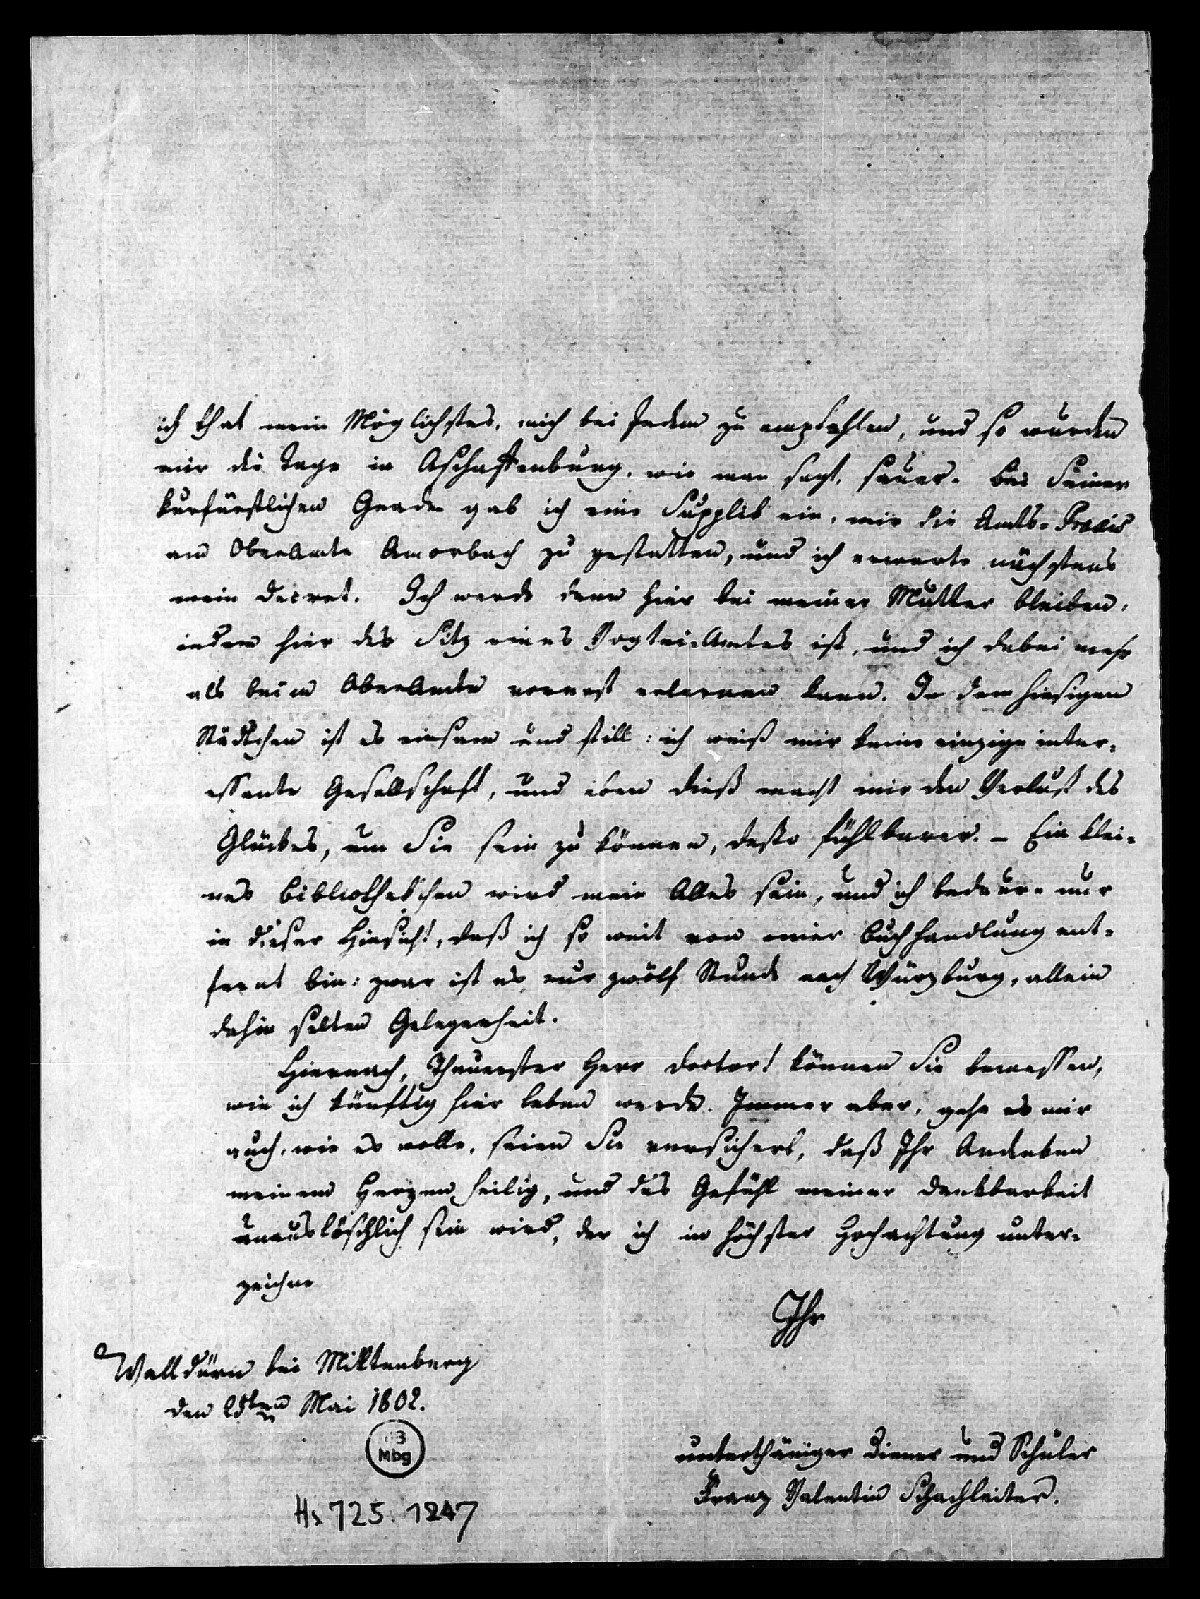 ich that mein Möglichstes, mich bei Jedem zu empfehlen, und so wurden
mir die Tage in Aschaffenburg, wie man sagt, sauer. Bei Seiner
kurfürstlichen Gnade gab ich eine Supplik ein, mir die Amts-Praxis
am Oberamte Amorbach zu gestatten, und ich erwarte nächstens
mein Decret. Ich werde dann hier bei meiner Mutter bleiben,
indem hier der Sitz eines Vogtei-Amtes ist, und ich dabei mehr
als beim Oberamte vorerst erlernen kann. In dem hiesigen
Städtchen ist es einsam und still: ich weiß mir keine einzige inter-
essante Gesellschaft, und eben dieß macht mir den Verlust des
Glückes, um Sie sein zu können, desto fühlbarer. – Ein klei-
nes Bibliothekchen wird mein Alles sein, und ich bedaure nur
in dieser Hinsicht, daß ich so weit von einer Buchhandlung ent-
fernt bin: zwar ist es nur zwölf Stunde nach Würzburg, allein
dahin selten Gelegenheit.
Hiernach, Theuerster Herr Doctor! können Sie bemessen,
wie ich künftig hier leben werde. Immer aber, gehe es mir
auch, wie es wolle, seien Sie versichert, daß Ihr Andenken
meinem Herzen heilig, und das Gefühl meiner Dankbarkeit
unauslöschlich sein wird, der ich in höchster Hochachtung unter-
zeichne
Ihr
Walldürn bei Miltenberg
den 25ten Mai 1802.
unterthäniger Diener und Schüler
Franz Valentin Schachleiter.
Mbg
Hs 725. 1247